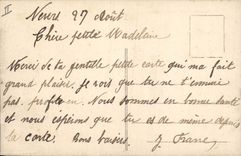 II
27 Août
Chère petite Madeleine
Merci de ta gentille petite carte qui ma fait
grand plaisir. Je vois que tu ne t'ennuie
pas, profite en. Nous sommes en bonne santé
et nous espérons que tu es de même depuis
la carte. Bons baisers